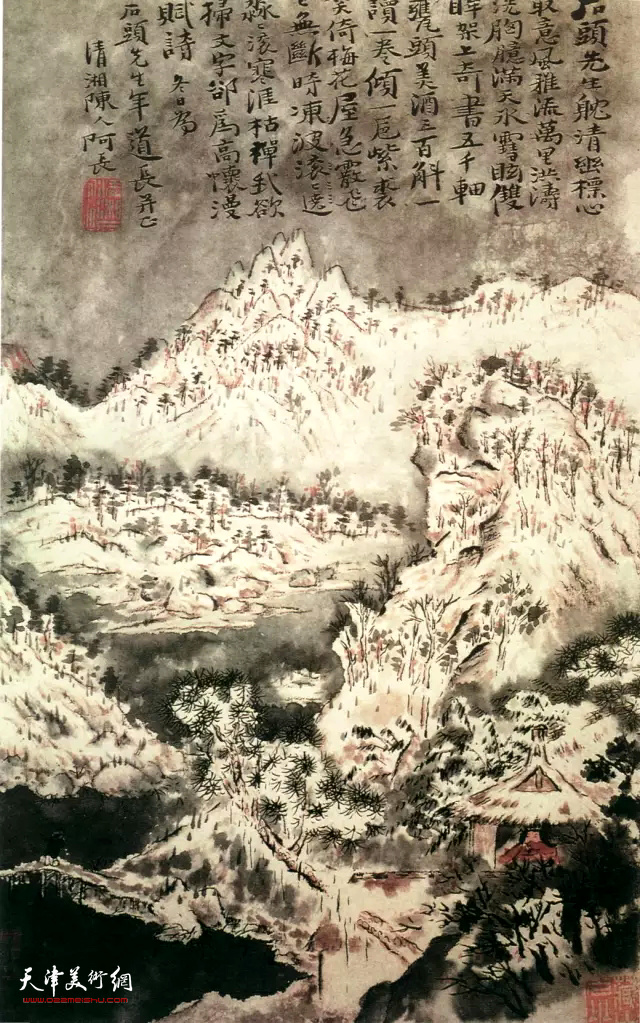 石頭先生耽清幽標心
取意風雅流萬里洪濤
洗胸臆滿天冰雪眩雙
眸架上奇書五千軸
甕頭美酒三百斛一
讀一卷傾一卮紫裘
笑倚梅花屋急霰飛
無斷時凍波滾
寒涯枯禪我欲
掃文字卻為高懷漫
賦詩 冬日為
石頭先生年道長并正
清湘陳人阿長
天津美術網